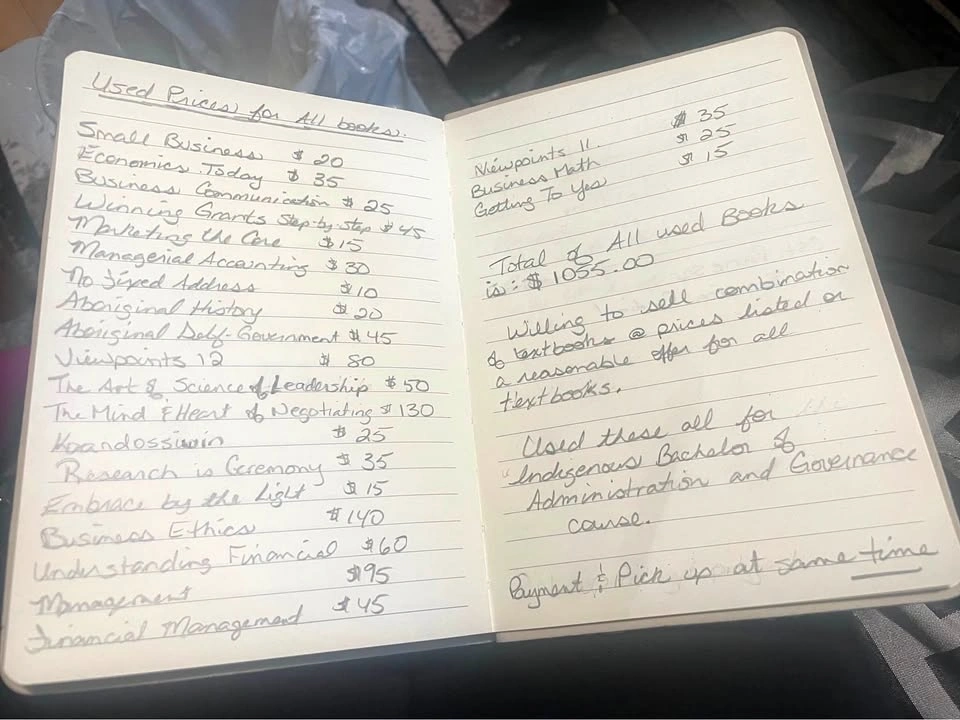 Used Prices for All books.
Small Business $ 20
Economics Today $ 35
Business Communication $ 25
Winning Grants Step-by-Step $ 45
Marketing the Core $ 15
Managerial Accounting $ 30
No Fixed Address $ 10
Aboriginal History $ 20
Aboriginal Self-Government $ 45
Viewpoints 12 $ 80
The Art & Science of Leadership $ 50
The Mind & Heart of Negotiating $ 130
Kaandossiwin $ 25
Research is Ceremony $ 35
Embrace by the Light $ 15
Business Ethics $ 140
Understanding Financial $ 60
Management $ 95
Financial Management $ 45
Viewpoints 11. $ 35
Business Math $ 25
Getting To Yes $ 15
Total of All used Books
is: $ 1055.00
Willing to sell combination
of textbooks @ prices listed or
a reasonable offer for all
textbooks.
Used these all for
"Indigenous Bachelor of
Administration and Governance
course.
Payment & Pick up at same time